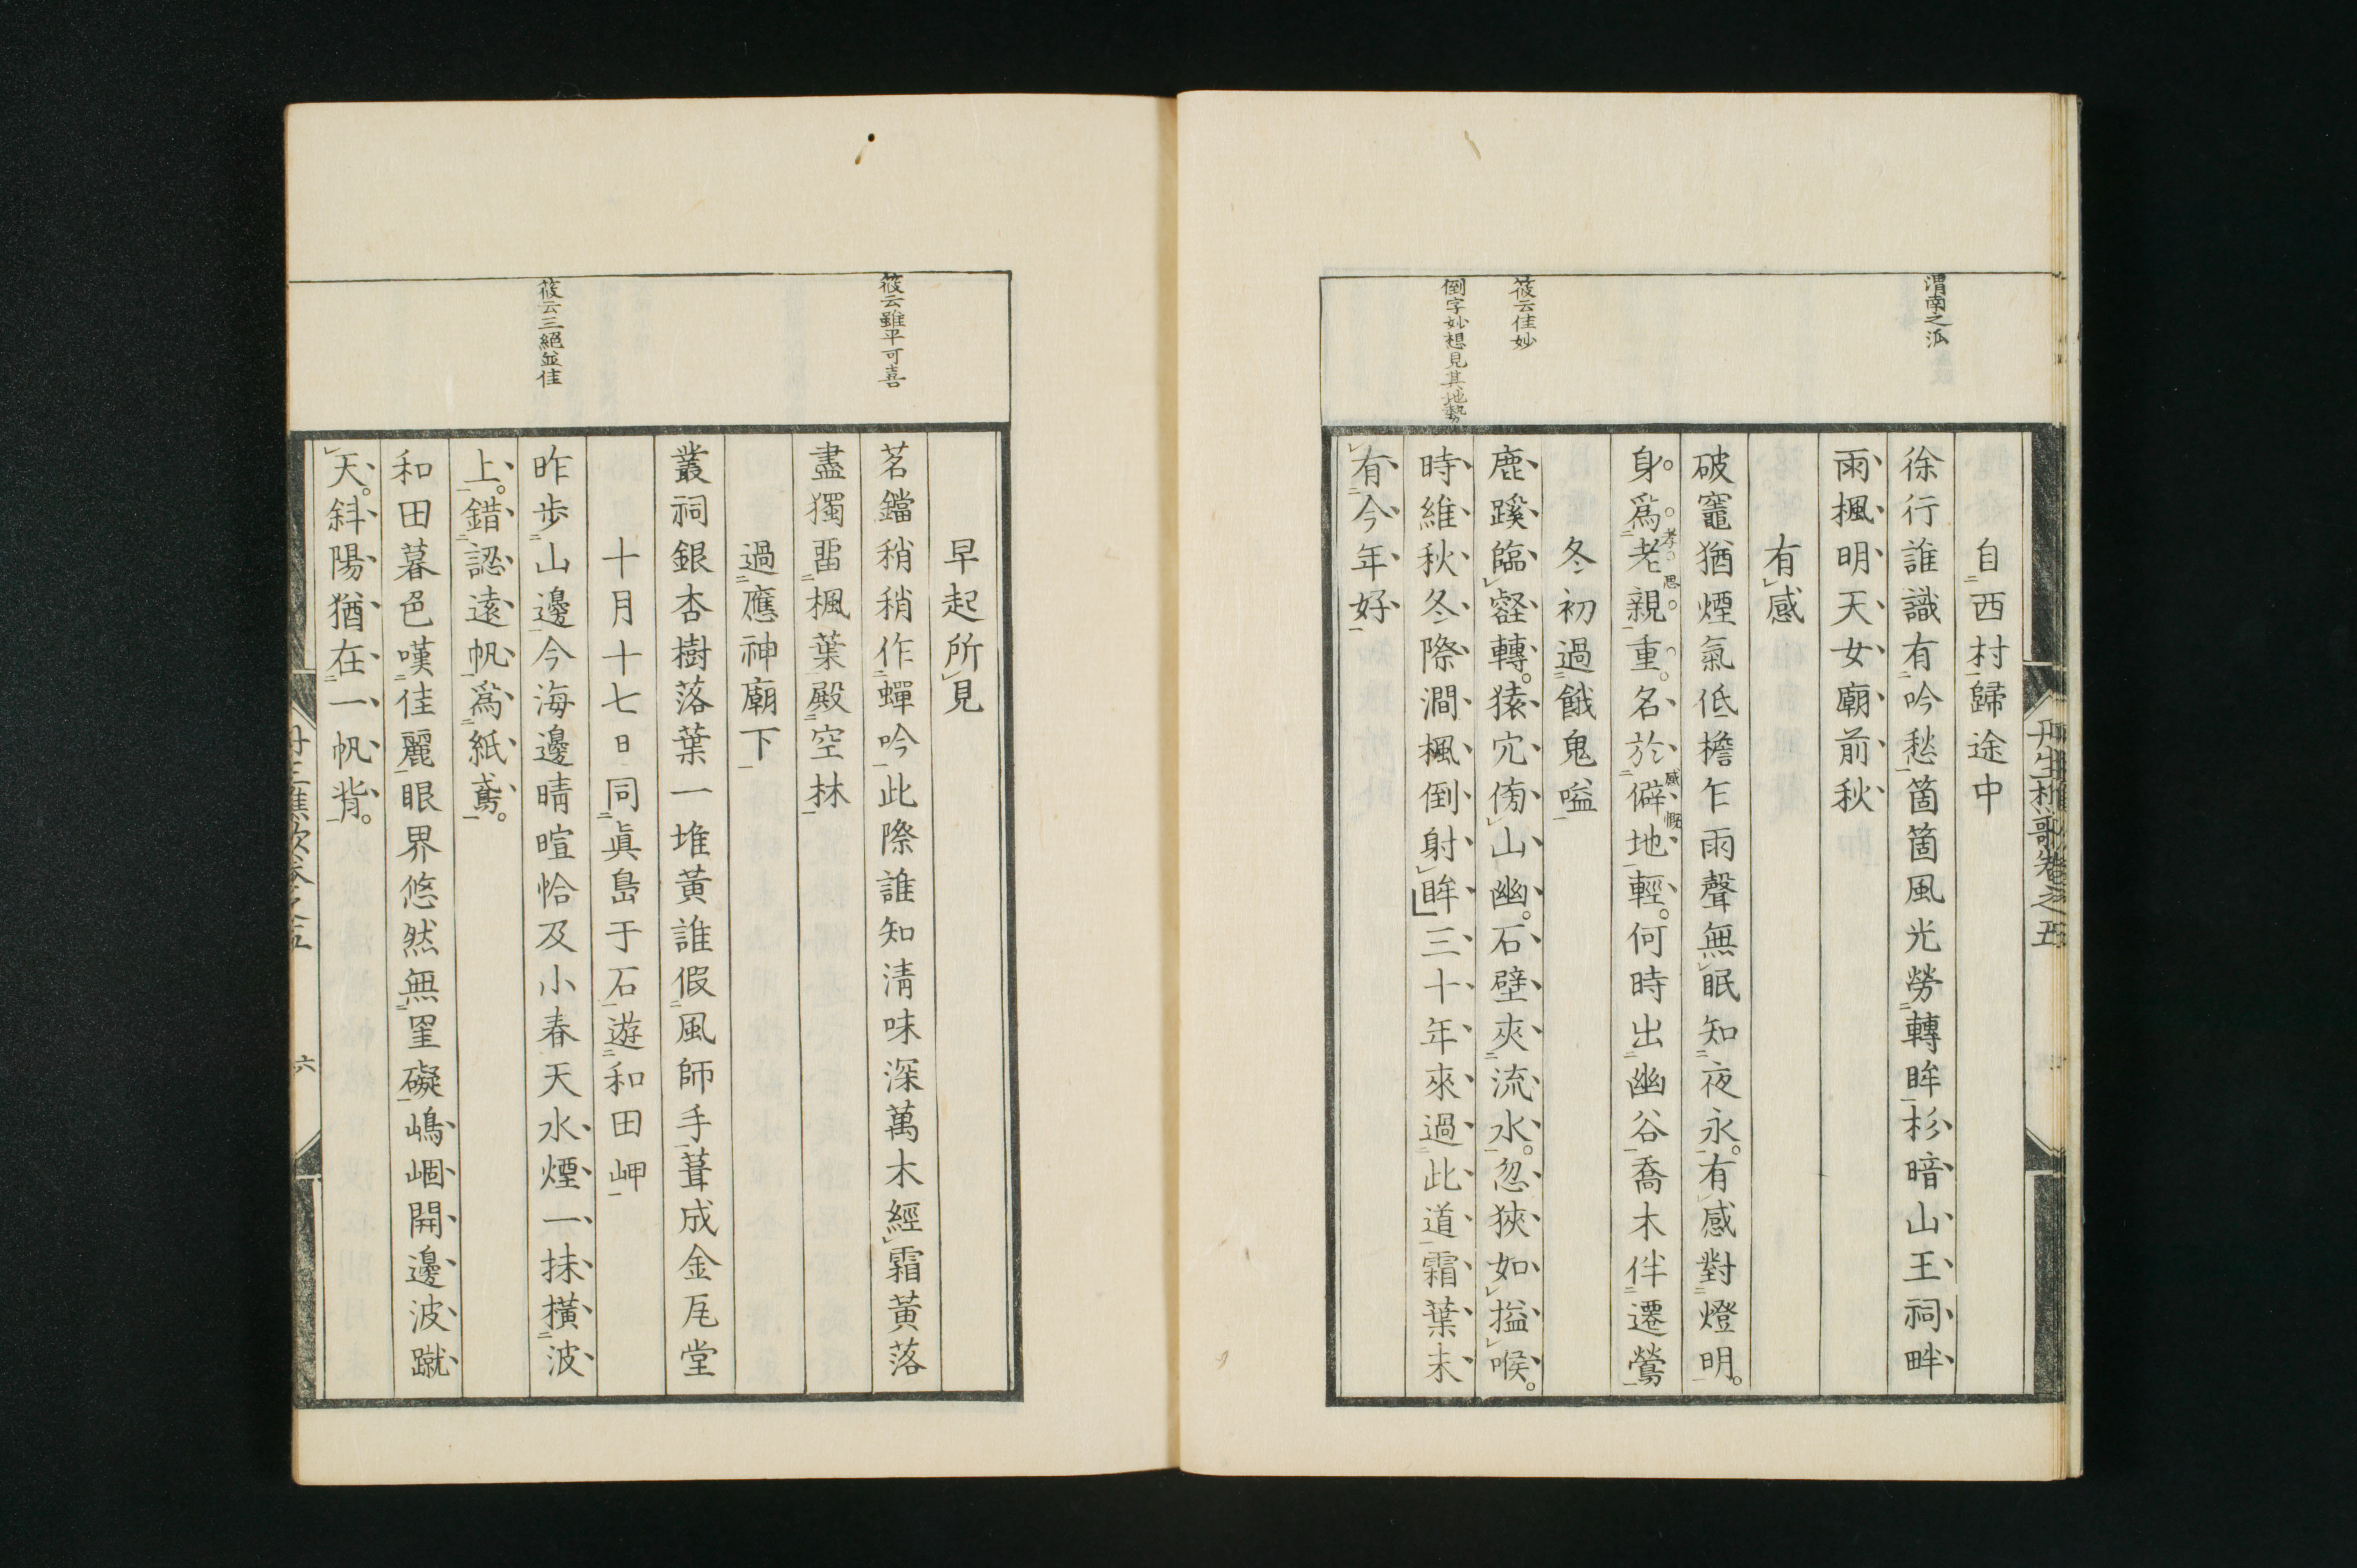 渭南之派
自西村歸途中
徐行誰識有吟愁箇箇風光勞轉眸杉暗山王祠畔
雨楓明天女廟前秋
有感
破竈猶煙氣低檐乍雨聲無眠知夜永。有感對燈明。
孝思。
身。爲。老。親。重。名於僻地輕。何時出幽谷喬木伴遷鶯
感慨
冬初過餓鬼嗌
筱云佳妙
鹿蹊臨壑轉。猿穴傍山幽。石壁夾流水。忽狹如搤喉。
倒字妙想見其地勢
時維秋冬際澗楓倒射眸三十年來過此道霜葉未
有今年好
丹生樵歌卷之五
早起所見
筱云雖平可喜
茗鐺稍稍作蟬吟此際誰知清味深萬木經霜黃落
盡獨畱楓葉殿空林
過應神廟下
叢祠銀杏樹落葉一堆黃誰假風師手葺成金瓦堂
十月十七日同眞島于石遊和田岬
筱云三絕並佳
昨步山邊今海邊晴暄恰及小春天水煙一抹橫波
上。錯認遠帆爲紙鳶。
和田暮色嘆佳麗眼界悠然無罣礙嶋崓開邊波蹴
天。斜陽猶在一帆背。
丹生樵歌卷之五
六